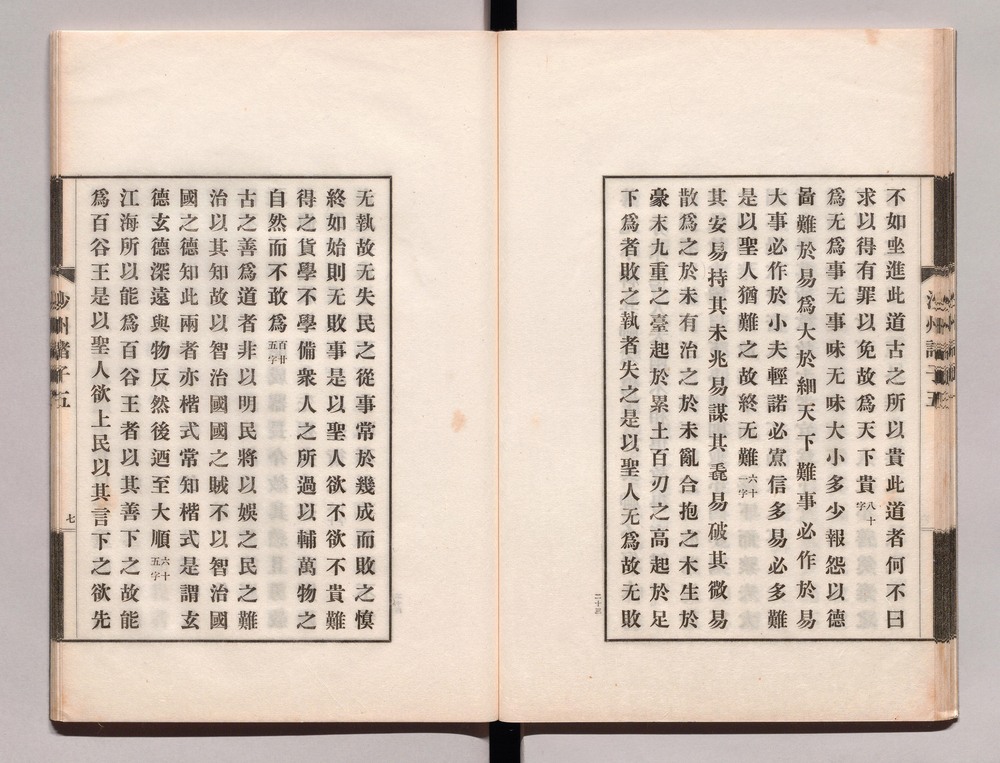 不如坐進此道古之所以貴此道者何不曰
求以得有罪以免故爲天下貴八十字
爲无爲事无事味无味大小多少報怨以德
啚難於易爲大於細天下難事必作於易
大事必作於小夫輕諾必寡信多易必多難
是以聖人猶難之故終无難六十一字
其安易持其未兆易謀其毳易破其微易
散爲之於未有治之於未亂合抱之木生於
豪末九重之臺起於累土百刃之高起於足
下爲者敗之執者失之是以聖人无爲故无敗
无執故无失民之從事常於幾成而敗之慎
終如始則无敗事是以聖人欲不欲不貴難
得之貨學不學備衆人之所過以輔萬物之
自然而不敢爲百廿五字
古之善爲道者非以明民將以娛之民之難
治以其知故以智治國國之賊不以智治國
國之德知此兩者亦楷式常知楷式是謂玄
德玄德深遠與物反然後迺至大順六十五字
江海所以能爲百谷王者以其善下之故能
爲百谷王是以聖人欲上民以其言下之欲先
沙州諸子五
七